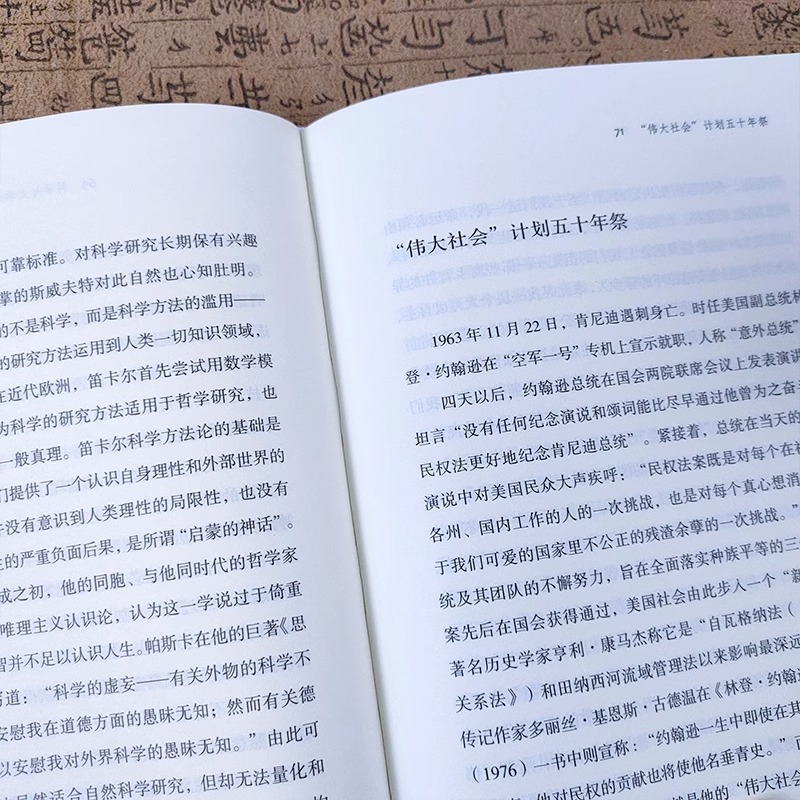 可靠标准。对科学研究长期保有兴趣
掌的斯威夫特对此自然也心知肚明。
的不是科学，而是科学方法的滥用——
的研究方法运用到人类一切知识领域，
在近代欧洲，笛卡尔首先尝试用数学模
为科学的研究方法适用于哲学研究，也
一般真理。笛卡尔科学方法论的基础是
们提供了一个认识自身理性和外部世界的
并没有意识到人类理性的局限性，也没有
生的严重负面后果，是所谓“启蒙的神话”。
成之初，他的同胞、与他同时代的哲学家
唯理主义认识论，认为这一学说过于倚重
智并不足以认识人生。帕斯卡在他的巨著《思
写道：“科学的虚妄——有关外物的科学不
安慰我在道德方面的愚昧无知；然而有关德
以安慰我对外界科学的愚昧无知。”由此可
虽然适合自然科学研究，但却无法量化和
71 “伟大社会”计划五十年祭
“伟大社会”计划五十年祭
1963年11月22日，肯尼迪遇刺身亡。时任美国副总统林
登·约翰逊在“空军一号”专机上宣示就职，人称“意外总统”
四天以后，约翰逊总统在国会两院联席会议上发表演讲
坦言“没有任何纪念演说和颂词能比尽早通过他曾为之奋
民权法更好地纪念肯尼迪总统”。紧接着，总统在当天的
演说中对美国民众大声疾呼：“民权法案既是对每个在
各州、国内工作的人的一次挑战，也是对每个真心想消
于我们可爱的国家里不公正的残渣余孽的一次挑战。”
统及其团队的不懈努力，旨在全面落实种族平等的三
案先后在国会获得通过，美国社会由此步入一个“新
著名历史学家亨利·康马杰称它是“自瓦格纳法（
关系法》）和田纳西河流域管理法以来影响最深远
传记作家多丽丝·基恩斯·古德温在《林登·约翰
（1976）一书中则宣称：“约翰逊一生中即使在其
，他对民权的贡献也将使他名垂青史。”
是他的“伟大社